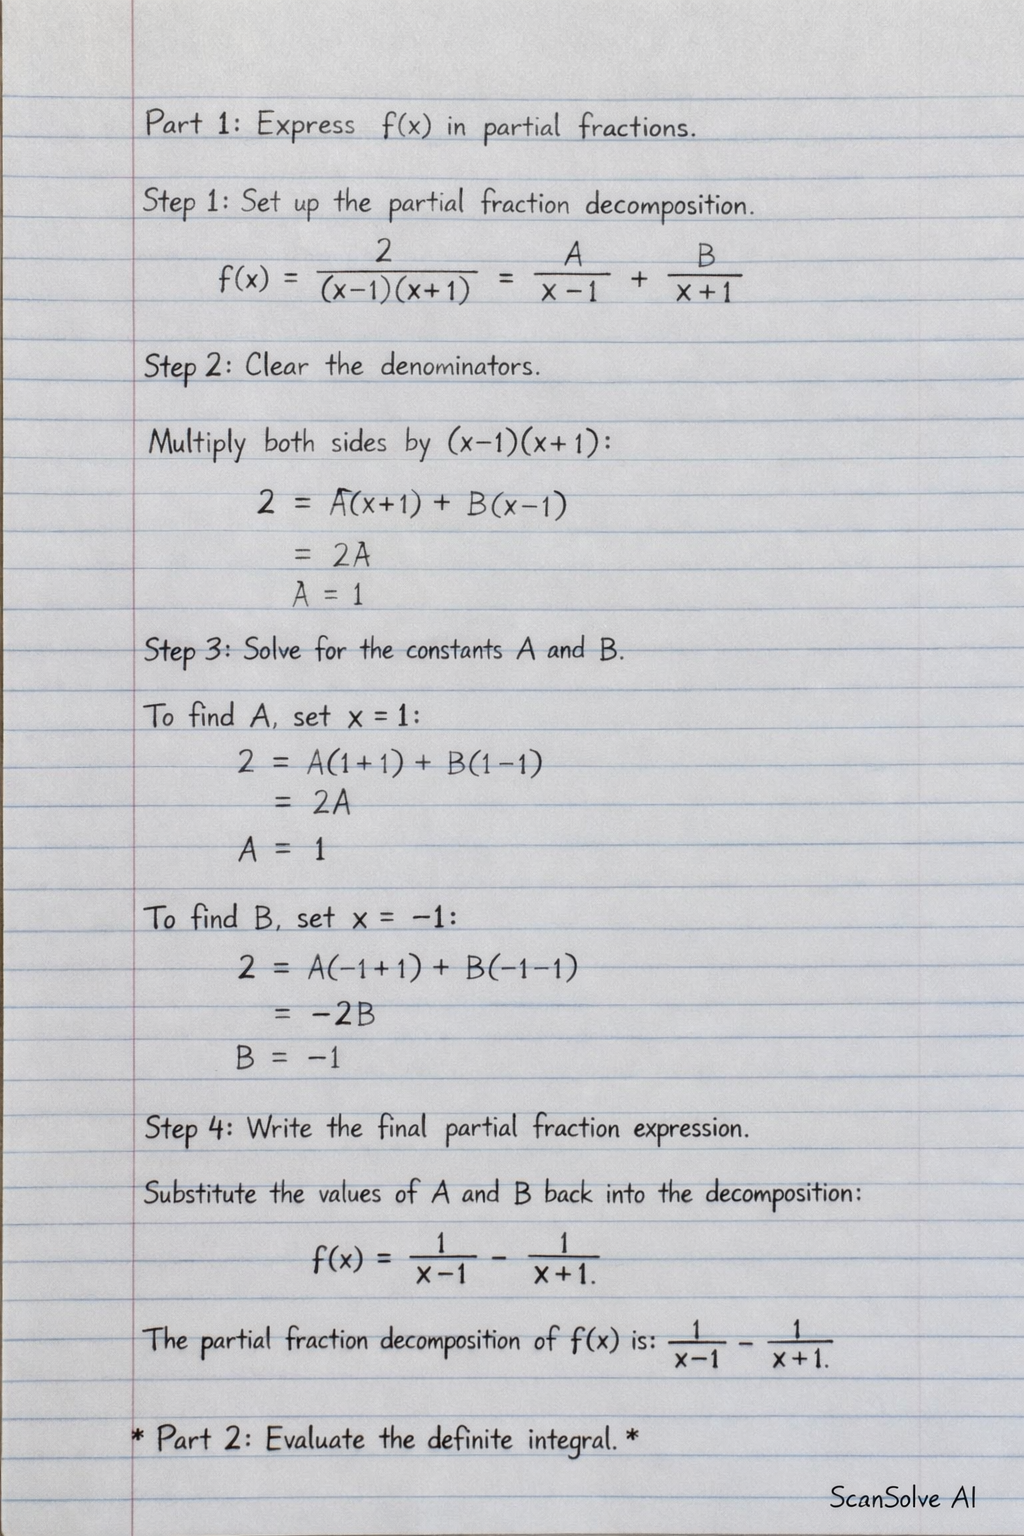 Part 1: Express f(x) in partial fractions.
Step 1: Set up the partial fraction decomposition.
f(x) = 2/((x-1)(x+1)) = A/(x-1) + B/(x+1)
Step 2: Clear the denominators.
Multiply both sides by (x-1)(x+1):
2 = A(x+1) + B(x-1)
= 2A
A = 1
Step 3: Solve for the constants A and B.
To find A, set x = 1:
2 = A(1+1) + B(1-1)
= 2A
A = 1
To find B, set x = -1:
2 = A(-1+1) + B(-1-1)
= -2B
B = -1
Step 4: Write the final partial fraction expression.
Substitute the values of A and B back into the decomposition:
f(x) = 1/(x-1) - 1/(x+1).
The partial fraction decomposition of f(x) is: 1/(x-1) - 1/(x+1).
* Part 2: Evaluate the definite integral. *
ScanSolve AI